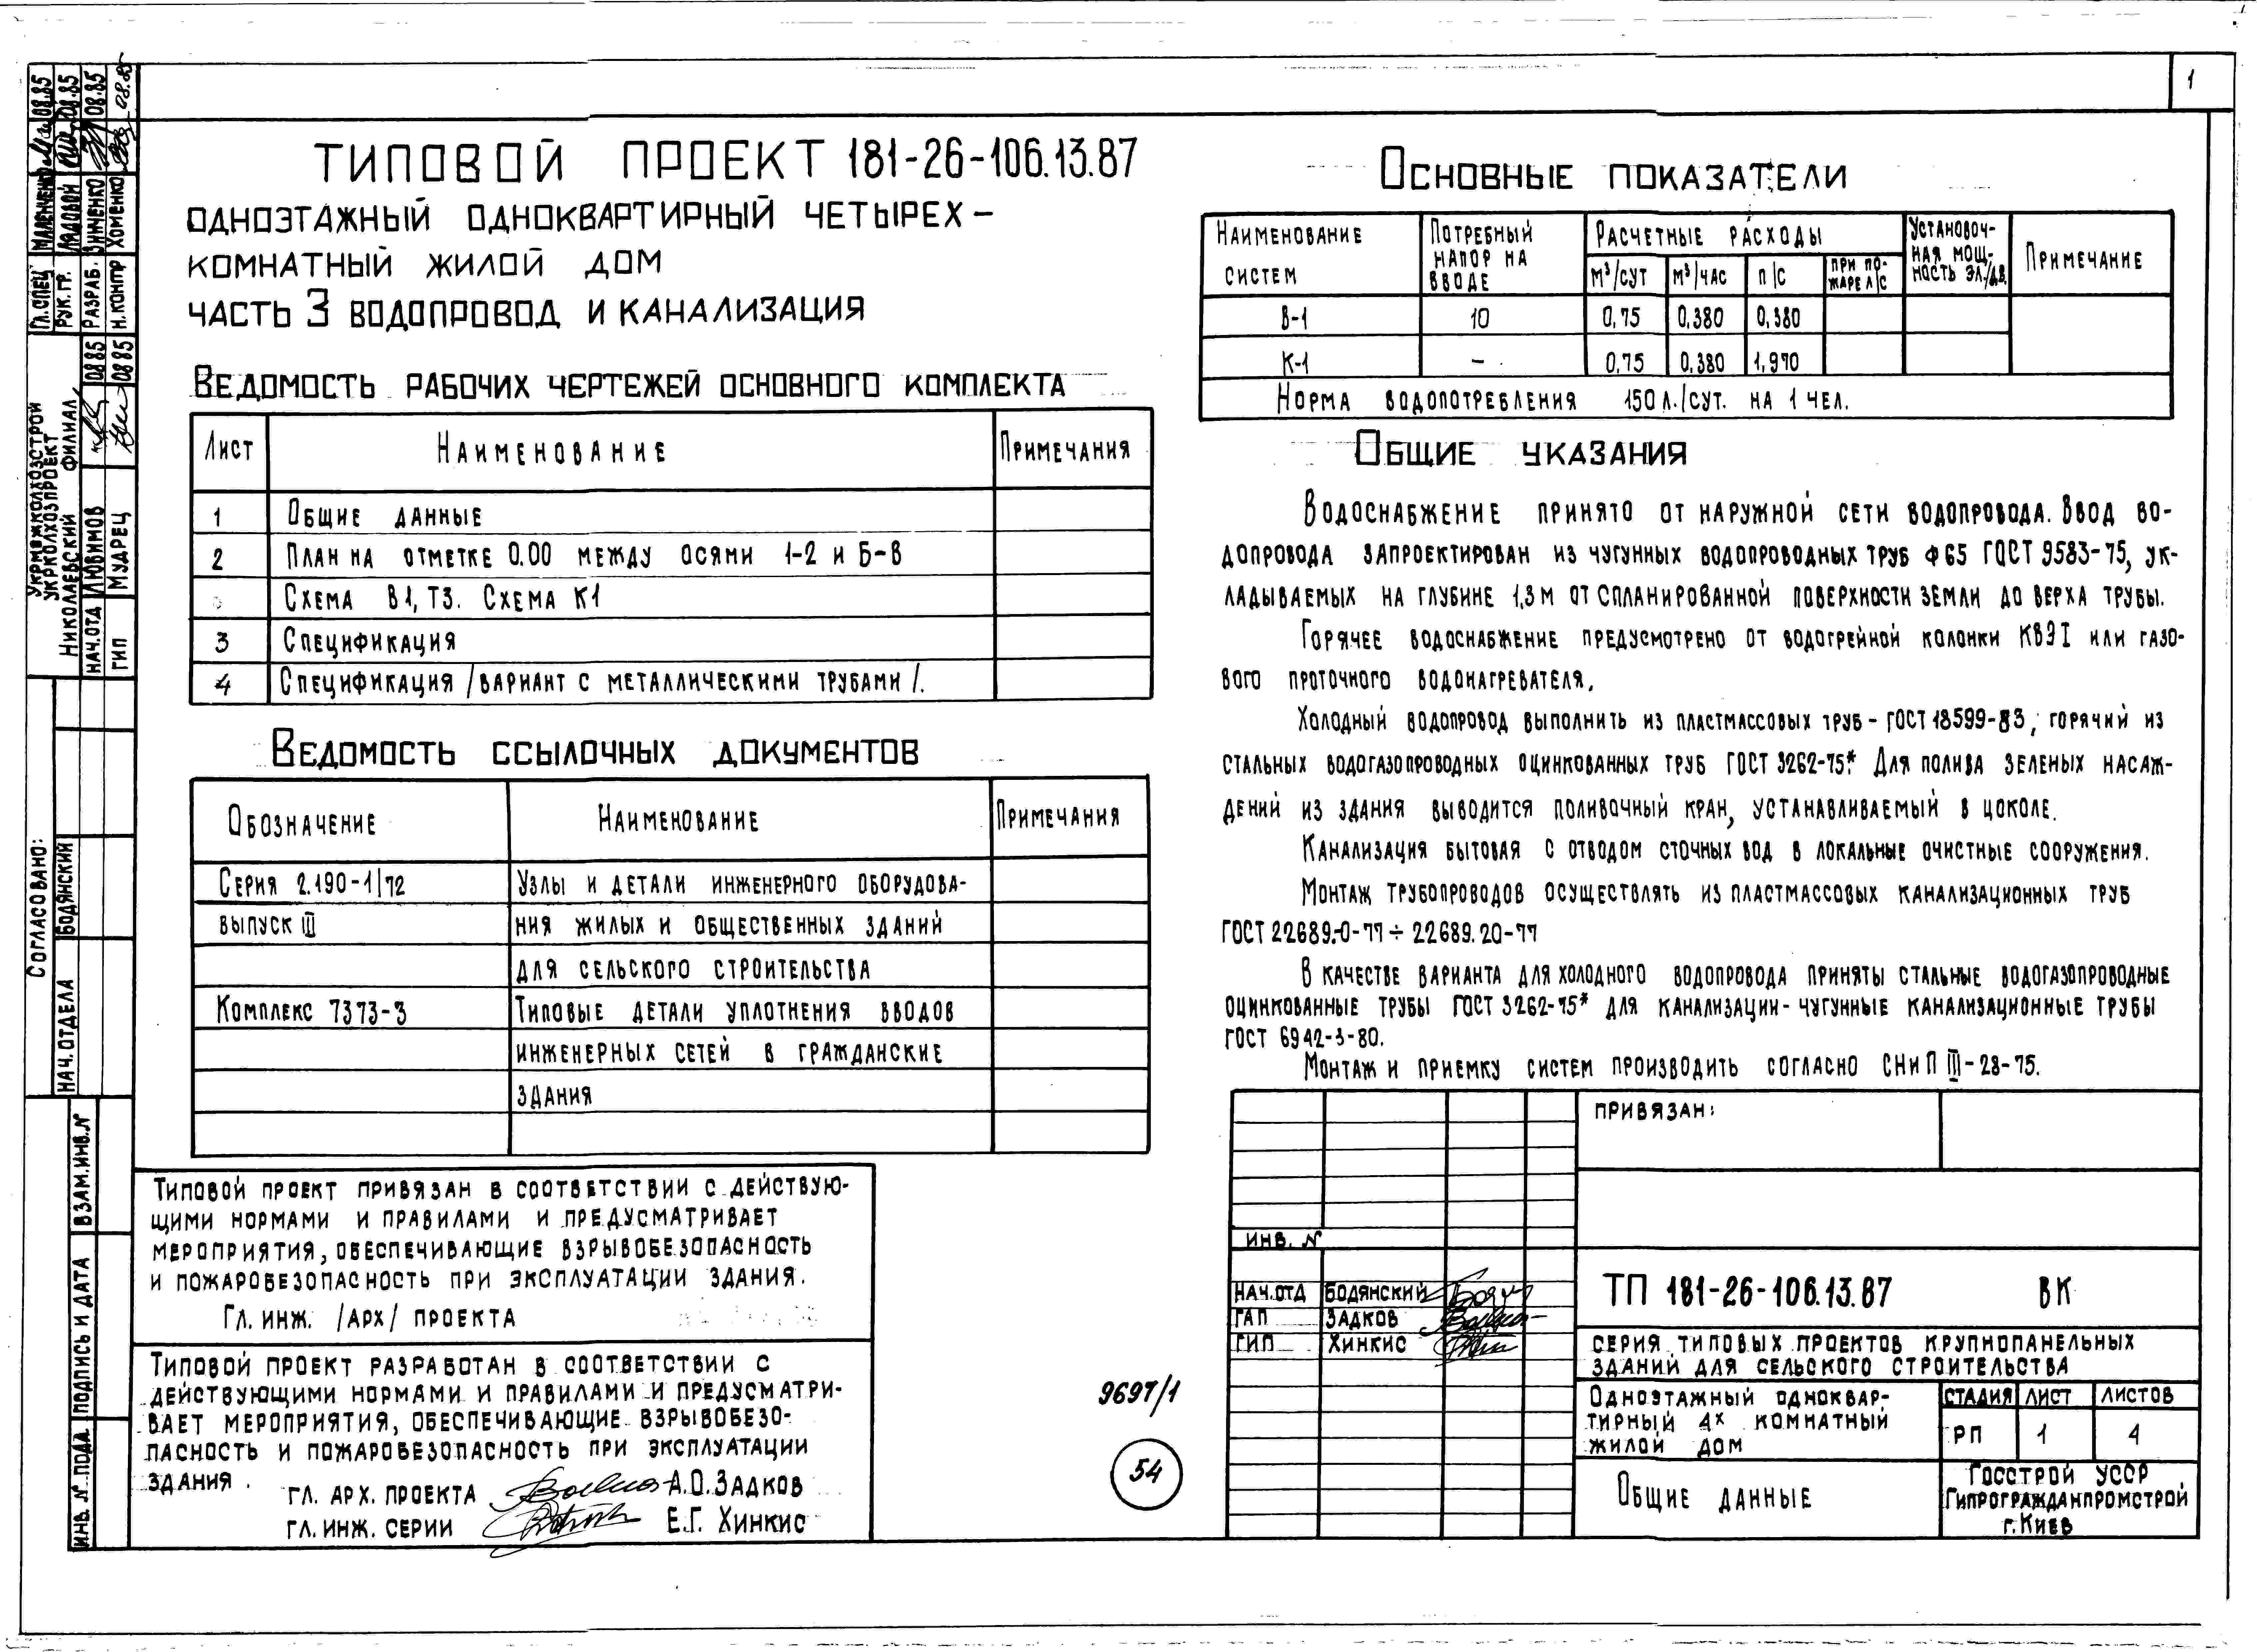 1
ТИПОВОЙ ПРОЕКТ 181-26-106.13.87
ОДНОЭТАЖНЫЙ ОДНОКВАРТИРНЫЙ ЧЕТЫРЕХ-
КОМНАТНЫЙ ЖИЛОЙ ДОМ
ЧАСТЬ 3 ВОДОПРОВОД И КАНАЛИЗАЦИЯ
ВЕДОМОСТЬ РАБОЧИХ ЧЕРТЕЖЕЙ ОСНОВНОГО КОМПЛЕКТА
ЛИСТ НАИМЕНОВАНИЕ ПРИМЕЧАНИЯ
1 ОБЩИЕ ДАННЫЕ
2 ПЛАН НА ОТМЕТКЕ 0.00 МЕЖДУ ОСЯМИ 1-2 И Б-В
СХЕМА В1, Т3. СХЕМА К1
3 СПЕЦИФИКАЦИЯ
4 СПЕЦИФИКАЦИЯ /ВАРИАНТ С МЕТАЛЛИЧЕСКИМИ ТРУБАМИ/.
ВЕДОМОСТЬ ССЫЛОЧНЫХ ДОКУМЕНТОВ
ОБОЗНАЧЕНИЕ НАИМЕНОВАНИЕ ПРИМЕЧАНИЯ
СЕРИЯ 2.190-1/72 УЗЛЫ И ДЕТАЛИ ИНЖЕНЕРНОГО ОБОРУДОВА-
ВЫПУСК III НИЯ ЖИЛЫХ И ОБЩЕСТВЕННЫХ ЗДАНИЙ
ДЛЯ СЕЛЬСКОГО СТРОИТЕЛЬСТВА
КОМПЛЕКС 7373-3 ТИПОВЫЕ ДЕТАЛИ УПЛОТНЕНИЯ ВВОДОВ
ИНЖЕНЕРНЫХ СЕТЕЙ В ГРАЖДАНСКИЕ
ЗДАНИЯ
ТИПОВОЙ ПРОЕКТ ПРИВЯЗАН В СООТВЕТСТВИИ С ДЕЙСТВУЮ-
ЩИМИ НОРМАМИ И ПРАВИЛАМИ И ПРЕДУСМАТРИВАЕТ
МЕРОПРИЯТИЯ, ОБЕСПЕЧИВАЮЩИЕ ВЗРЫВОБЕЗОПАСНОСТЬ
И ПОЖАРОБЕЗОПАСНОСТЬ ПРИ ЭКСПЛУАТАЦИИ ЗДАНИЯ.
ГЛ. ИНЖ. /АРХ/ ПРОЕКТА
ТИПОВОЙ ПРОЕКТ РАЗРАБОТАН В СООТВЕТСТВИИ С
ДЕЙСТВУЮЩИМИ НОРМАМИ И ПРАВИЛАМИ И ПРЕДУСМАТРИ-
ВАЕТ МЕРОПРИЯТИЯ, ОБЕСПЕЧИВАЮЩИЕ ВЗРЫВОБЕЗО-
ПАСНОСТЬ И ПОЖАРОБЕЗОПАСНОСТЬ ПРИ ЭКСПЛУАТАЦИИ
ЗДАНИЯ.
ГЛ. АРХ. ПРОЕКТА А.О. ЗАДКОВ
ГЛ. ИНЖ. СЕРИИ Е.Г. ХИНКИС
9697/1
54
ОСНОВНЫЕ ПОКАЗАТЕЛИ
НАИМЕНОВАНИЕ СИСТЕМ ПОТРЕБНЫЙ НАПОР НА ВВОДЕ РАСЧЕТНЫЕ РАСХОДЫ УСТАНОВОЧ-НАЯ МОЩ-НОСТЬ ЭЛ./ДВ. ПРИМЕЧАНИЕ
М³/СУТ М³/ЧАС Л/С ПРИ ПО-ЖАРЕ Л/С
В-1 10 0,75 0,380 0,380
К-1 - 0,75 0,380 1,970
НОРМА ВОДОПОТРЕБЛЕНИЯ 150 Л./СУТ. НА 1 ЧЕЛ.
ОБЩИЕ УКАЗАНИЯ
ВОДОСНАБЖЕНИЕ ПРИНЯТО ОТ НАРУЖНОЙ СЕТИ ВОДОПРОВОДА. ВВОД ВО-
ДОПРОВОДА ЗАПРОЕКТИРОВАН ИЗ ЧУГУННЫХ ВОДОПРОВОДНЫХ ТРУБ Ф 65 ГОСТ 9583-75, УК-
ЛАДЫВАЕМЫХ НА ГЛУБИНЕ 1,3 М ОТ СПЛАНИРОВАННОЙ ПОВЕРХНОСТИ ЗЕМЛИ ДО ВЕРХА ТРУБЫ.
ГОРЯЧЕЕ ВОДОСНАБЖЕНИЕ ПРЕДУСМОТРЕНО ОТ ВОДОГРЕЙНОЙ КОЛОНКИ КВЭI ИЛИ ГАЗО-
ВОГО ПРОТОЧНОГО ВОДОНАГРЕВАТЕЛЯ.
ХОЛОДНЫЙ ВОДОПРОВОД ВЫПОЛНИТЬ ИЗ ПЛАСТМАССОВЫХ ТРУБ - ГОСТ 18599-83, ГОРЯЧИЙ ИЗ
СТАЛЬНЫХ ВОДОГАЗОПРОВОДНЫХ ОЦИНКОВАННЫХ ТРУБ ГОСТ 3262-75*. ДЛЯ ПОЛИВА ЗЕЛЕНЫХ НАСАЖ-
ДЕНИЙ ИЗ ЗДАНИЯ ВЫВОДИТСЯ ПОЛИВОЧНЫЙ КРАН, УСТАНАВЛИВАЕМЫЙ В ЦОКОЛЕ.
КАНАЛИЗАЦИЯ БЫТОВАЯ С ОТВОДОМ СТОЧНЫХ ВОД В ЛОКАЛЬНЫЕ ОЧИСТНЫЕ СООРУЖЕНИЯ.
МОНТАЖ ТРУБОПРОВОДОВ ОСУЩЕСТВЛЯТЬ ИЗ ПЛАСТМАССОВЫХ КАНАЛИЗАЦИОННЫХ ТРУБ
ГОСТ 22689.0-77 ÷ 22689.20-77
В КАЧЕСТВЕ ВАРИАНТА ДЛЯ ХОЛОДНОГО ВОДОПРОВОДА ПРИНЯТЫ СТАЛЬНЫЕ ВОДОГАЗОПРОВОДНЫЕ
ОЦИНКОВАННЫЕ ТРУБЫ ГОСТ 3262-75* ДЛЯ КАНАЛИЗАЦИИ - ЧУГУННЫЕ КАНАЛИЗАЦИОННЫЕ ТРУБЫ
ГОСТ 6942-3-80.
МОНТАЖ И ПРИЕМКУ СИСТЕМ ПРОИЗВОДИТЬ СОГЛАСНО СНиП III-28-75.
ПРИВЯЗАН:
ИНВ. N
НАЧ.ОТД БОДЯНСКИЙ
ГАП ЗАДКОВ
ГИП ХИНКИС
ТП 181-26-106.13.87 ВК
СЕРИЯ ТИПОВЫХ ПРОЕКТОВ КРУПНОПАНЕЛЬНЫХ
ЗДАНИЙ ДЛЯ СЕЛЬСКОГО СТРОИТЕЛЬСТВА
ОДНОЭТАЖНЫЙ ОДНОКВАР-
ТИРНЫЙ 4х КОМНАТНЫЙ
ЖИЛОЙ ДОМ
СТАДИЯ ЛИСТ ЛИСТОВ
РП 1 4
ОБЩИЕ ДАННЫЕ
ГОССТРОЙ УССР
ГИПРОГРАЖДАНПРОМСТРОЙ
г. КИЕВ
ГЛ. СПЕЦ МАЛЕНЧЕНКО 08.85
РУК. ГР. ЛЯДОВОЙ 08.85
РАЗРАБ. ЗИНЧЕНКО 08.85
Н.КОНТР ХОМЕНКО 08.85
УКРМЕЖКОЛХОЗСТРОЙ
УКРКОЛХОЗПРОЕКТ
НИКОЛАЕВСКИЙ ФИЛИАЛ
НАЧ.ОТД ЛЮБИМОВ 08 85
ГИП МУДРЕЦ 08 85
СОГЛАСОВАНО:
НАЧ. ОТДЕЛА БОДЯНСКИЙ
ВЗАМ.ИНВ.N
ПОДПИСЬ И ДАТА
ИНВ. N ПОДЛ